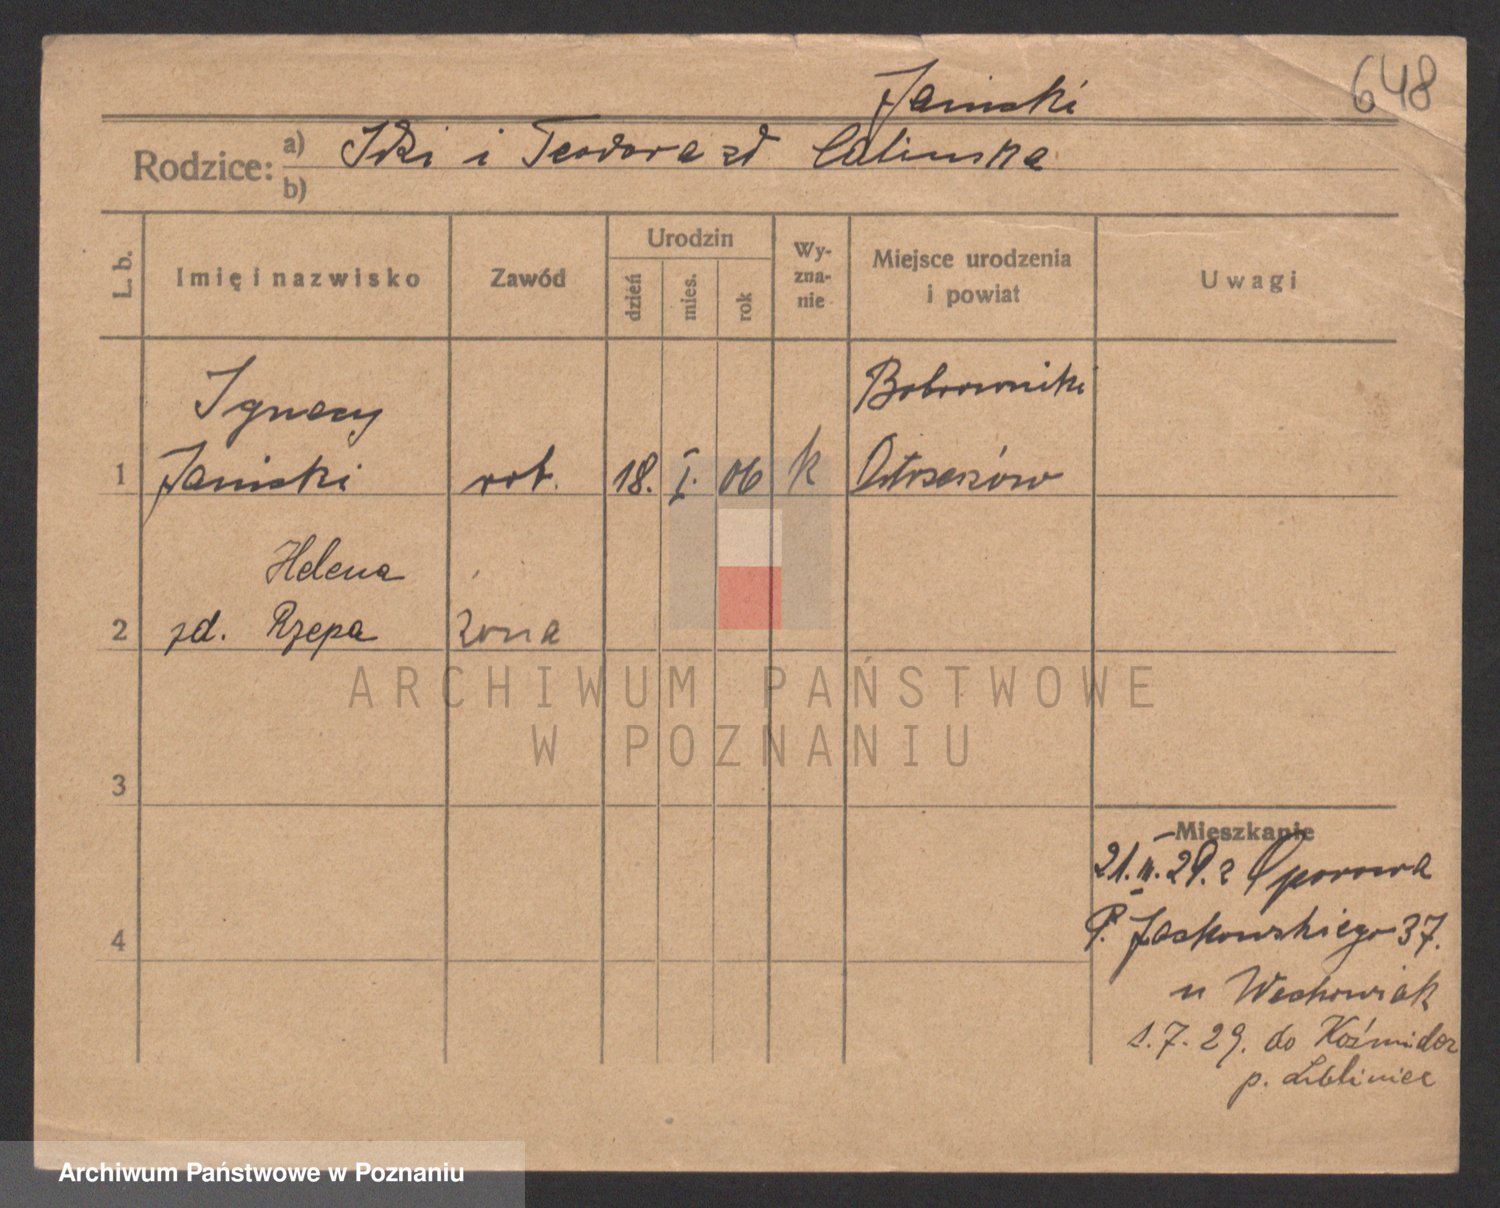 648
Janicki
Rodzice: a) Idzi i Teodora zd Calinska
b)
L. b.
Imię i nazwisko
Zawód
Urodzin
dzień
mies.
rok
Wy-
zna-
nie
Miejsce urodzenia
i powiat
Uwagi
Ignacy
Bobrowniki
1 Janicki rob. 18. I. 06 k Ostrzeszów
Helena
2 zd. Rzepa żona
ARCHIWUM PAŃSTWOWE
W POZNANIU
3
Mieszkanie
21. II. 29. z Oporowa
4
P. Jackowskiego 37.
u Wachowiak
1. 7. 29. do Koźmider
p. Lubliniec
Archiwum Państwowe w Poznaniu